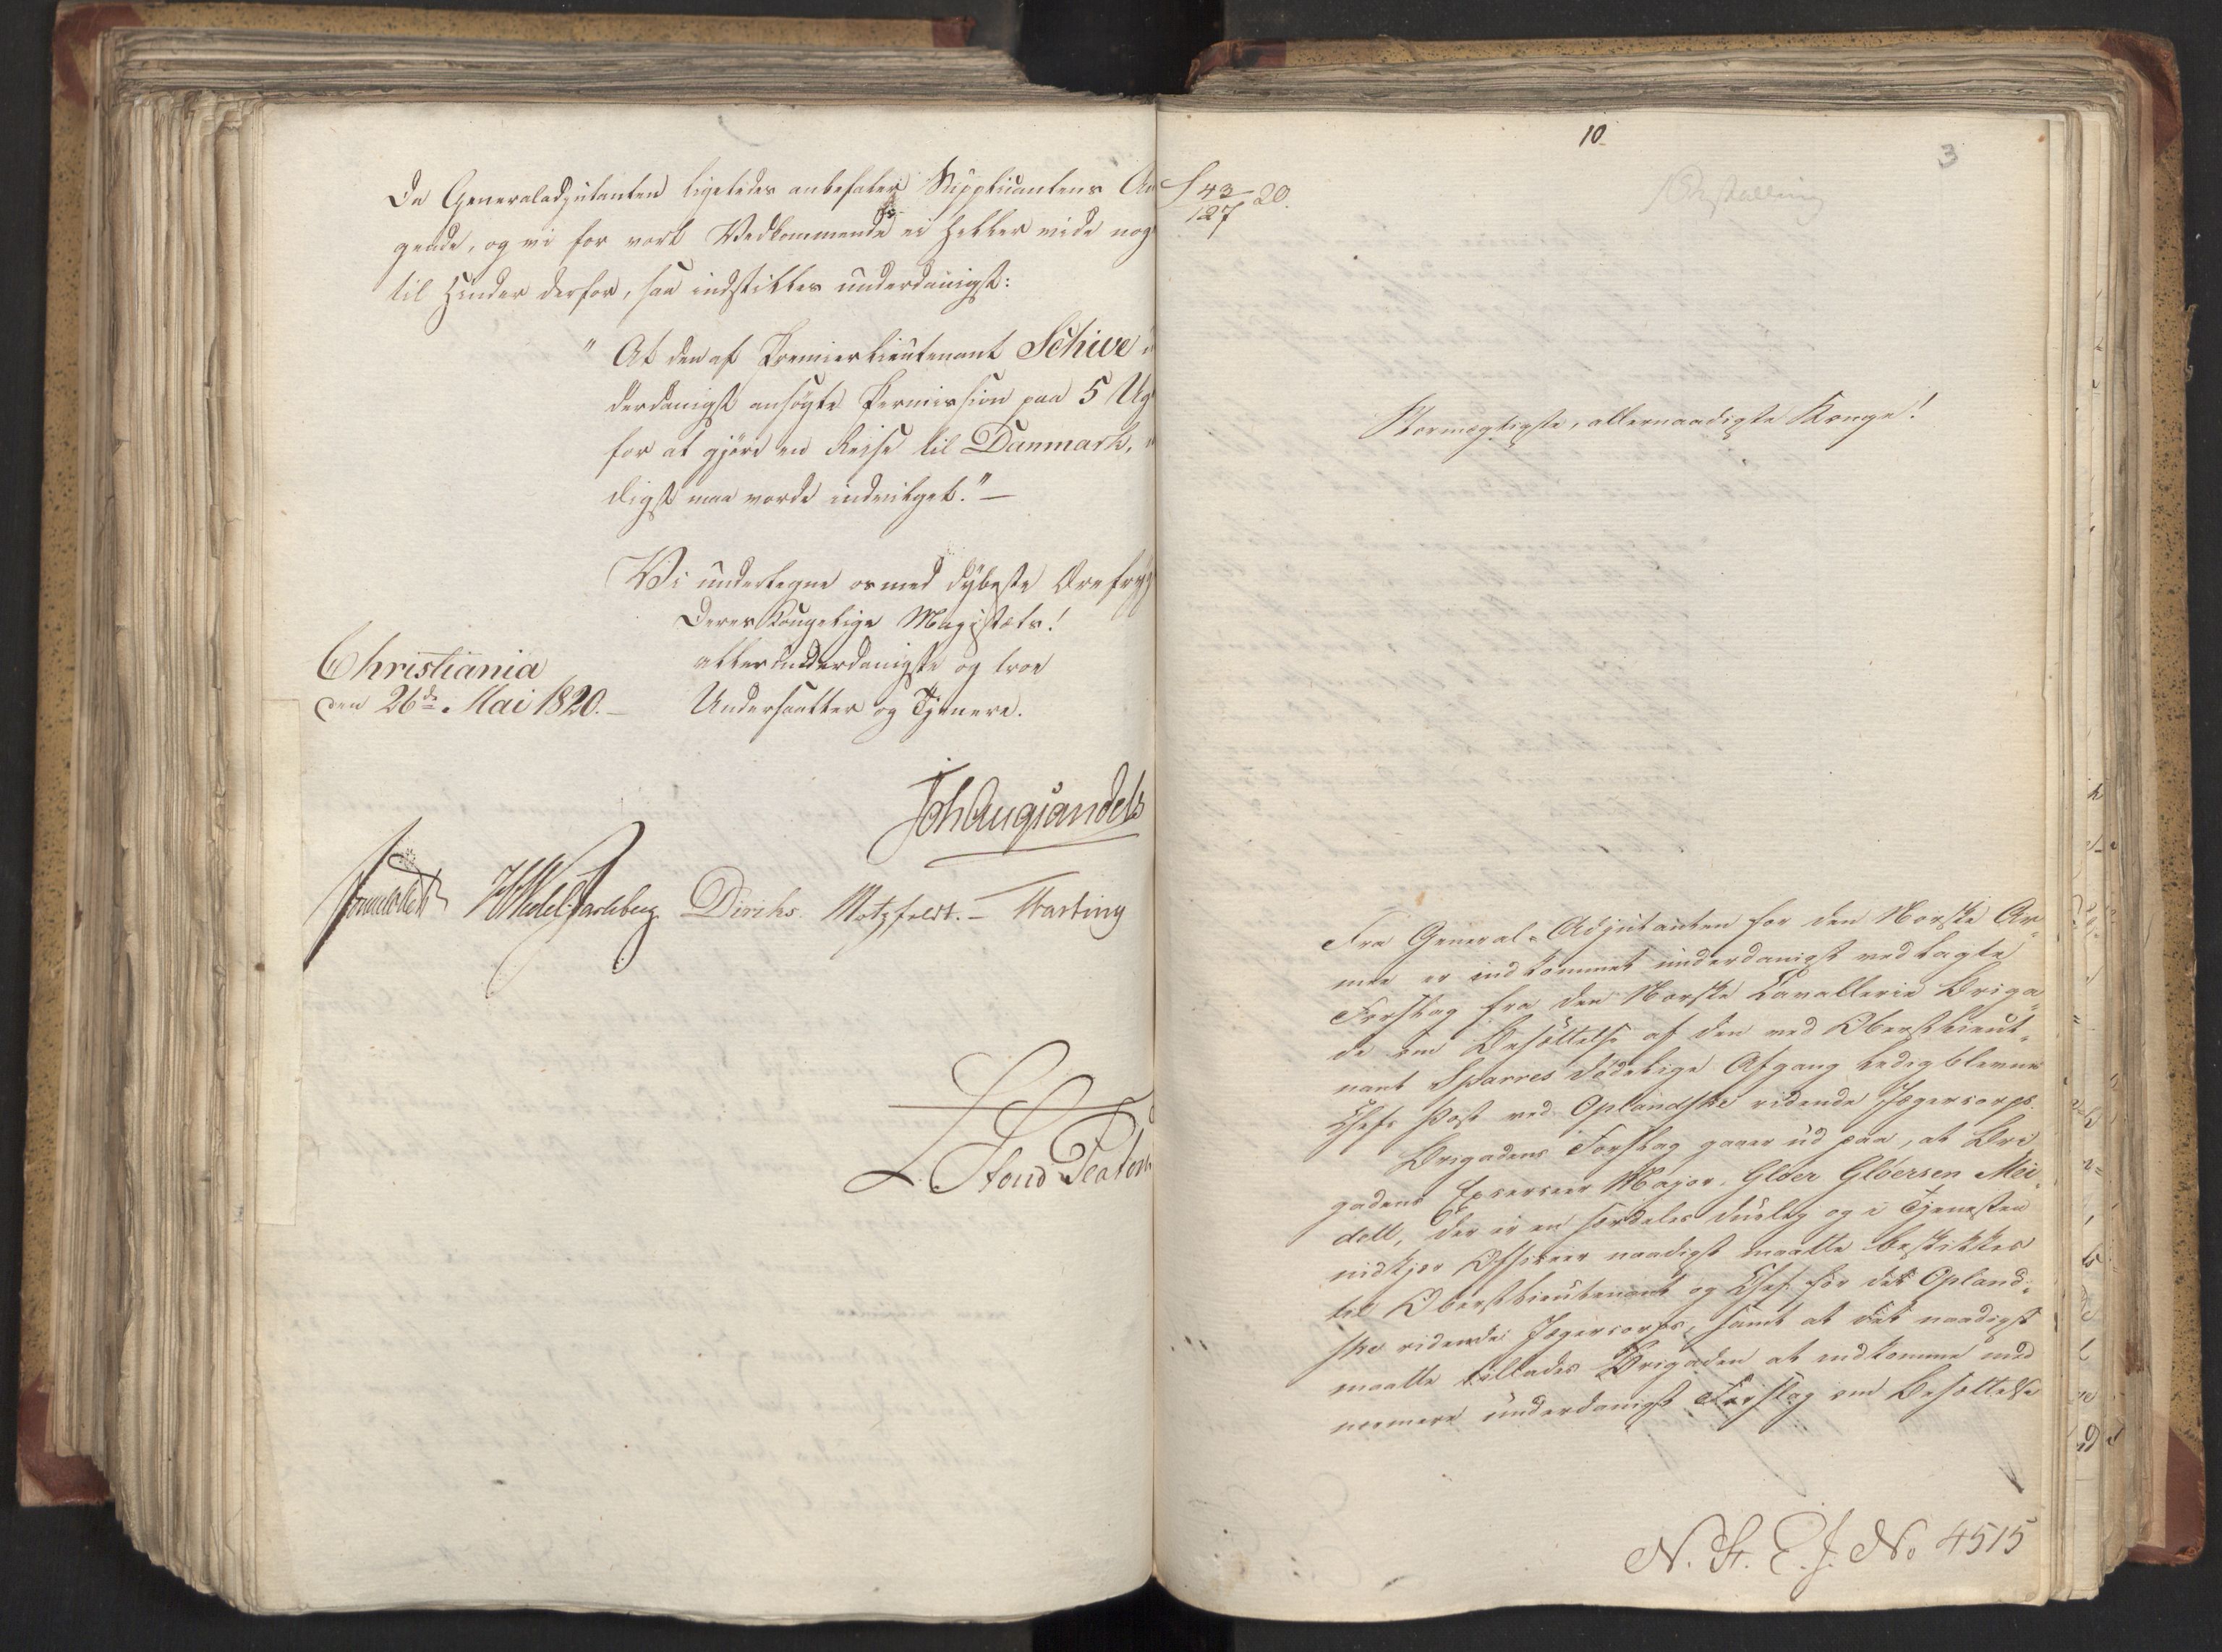 Da Generaladjutanten ligeledes anbefaler Supplicantens An
gende, og vi for vort Vedkommende ei heller vide nog
til Hinder derfor, saa indstilles underdanigst:
" At den af Premierlieutenant Schive
derdanigst ansøgte Permission paa 5 Ug
for at gjøre en Reise til Danmark,
digst maa vorde indvilget." —
Vi undertegne os med dybeste Ærefryg
Deres Kongelige Majestæts!
allerunderdanigste og troe
Undersaatter og Tjenere.
Christiania
den 26de Mai 1820. —
Joh Aug Sandels
Sommerhielm HWedel Jarlsberg. Diriks. Motzfeldt. — Fasting
L. Stoud Platou
10
3
S 43/127 20.
Indstilling
Stormægtigste, allernaadigste Konge!
Fra General-Adjutanten for den Norske Ar-
mee er indkommet underdanigst vedlagte
Forslag fra den Norske Cavallerie Briga-
de om Besættelse af den ved Oberstlieut-
nant Sparres dødelige Afgang ledigblevne
Chefs Post ved Oplandske ridende Jægercorps.
Brigadens Forslag gaaer ud paa, at Bri
gadens Exerceer Major, Gløer Gløersen Mei-
dell, der er en særdeles duelig og i Tjenesten
nidkjer Officeer naadigst maatte beskikkes
til Oberstlieutenant og Chef for det Opland-
ske ridende Jægercorps, samt at det naadigst
maatte tillades Brigaden at indkomme med
nærmere underdanigst Forslag om Besættelse
N. St. E. J. No 4515